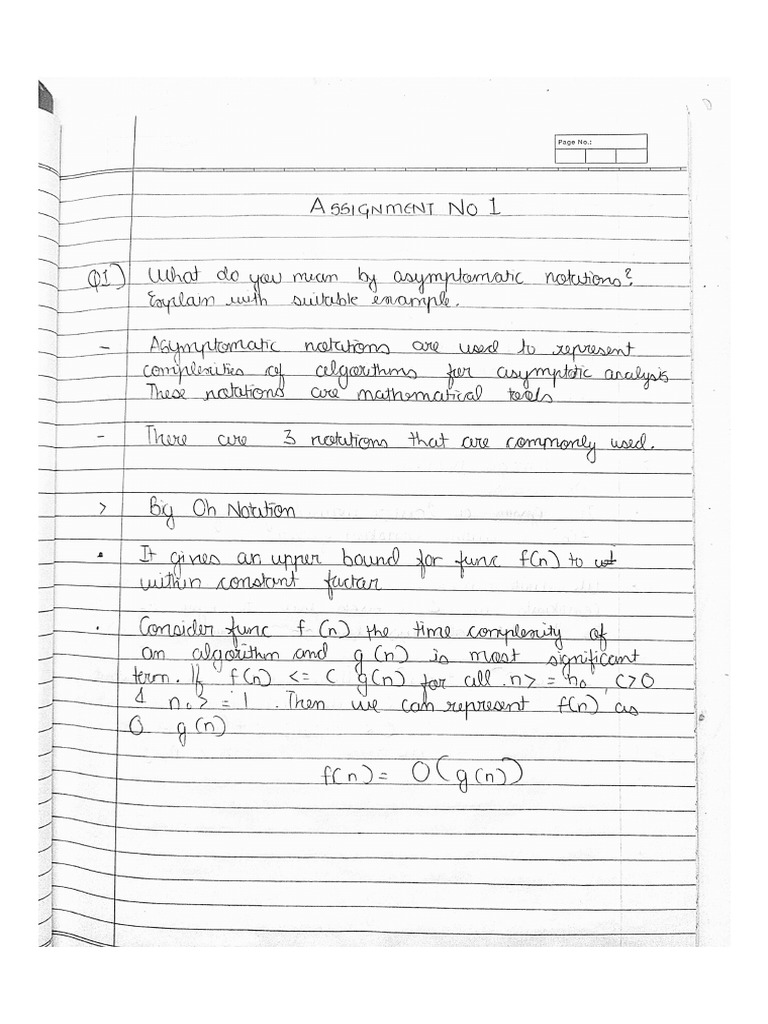 Page No.:
ASSIGNMENT NO 1
Q1) What do you mean by asymptomatic notations?
Explain with suitable example.
- Asymptomatic notations are used to represent
complexities of algorithms for asymptotic analysis
These notations are mathematical tools
- There are 3 notations that are commonly used.
> Big Oh Notation
• It gives an upper bound for func f(n) to
within constant factor
• Consider func f (n) the time complexity of
an algorithm and g (n) is most significant
term. If f(n) <= C g(n) for all n> = n₀, C>0
& n₀> = 1. Then we can represent f(n) as
O g(n)
f(n) = O(g(n))